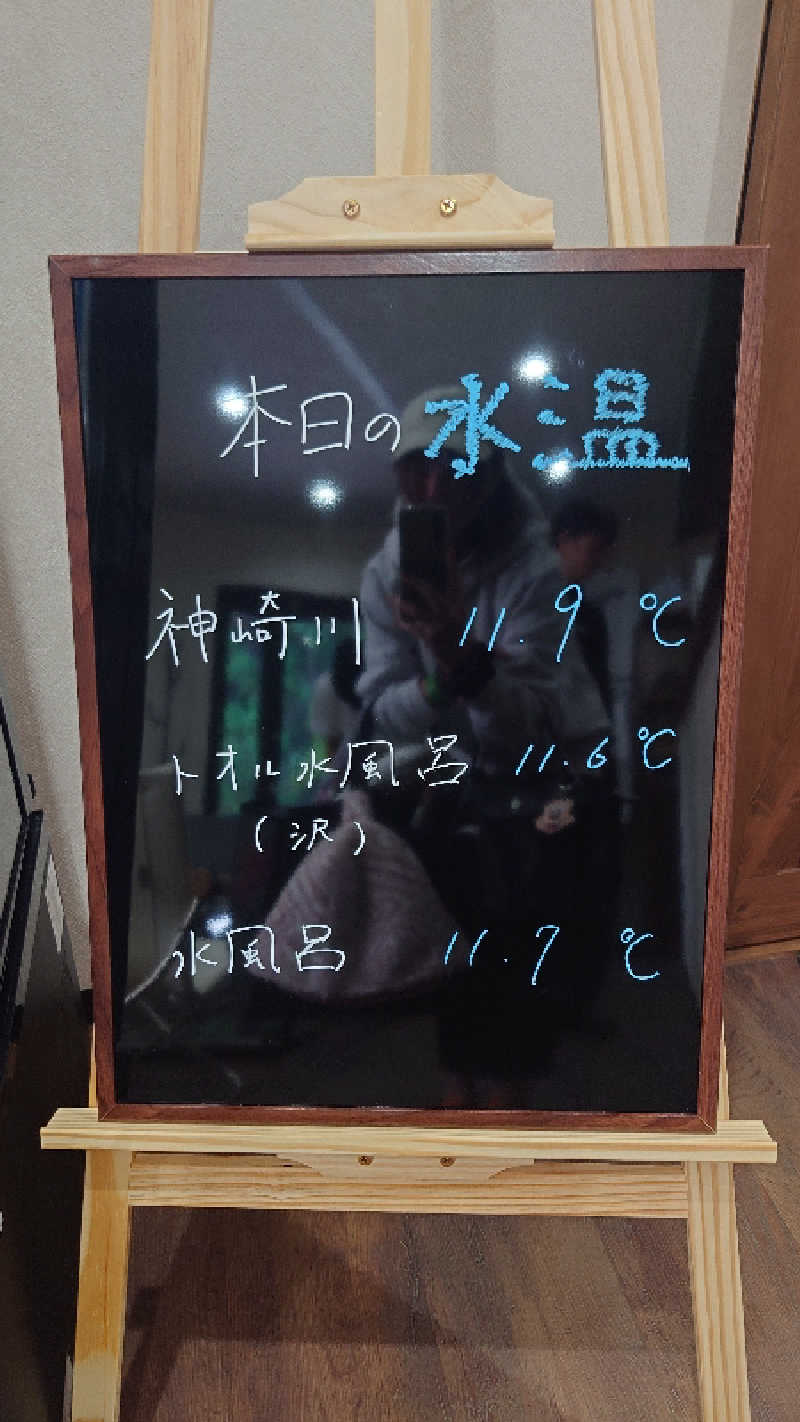 本日の水温
神崎川 11.9 ℃
トオル水風呂 11.6 ℃
(沢)
水風呂 11.7 ℃